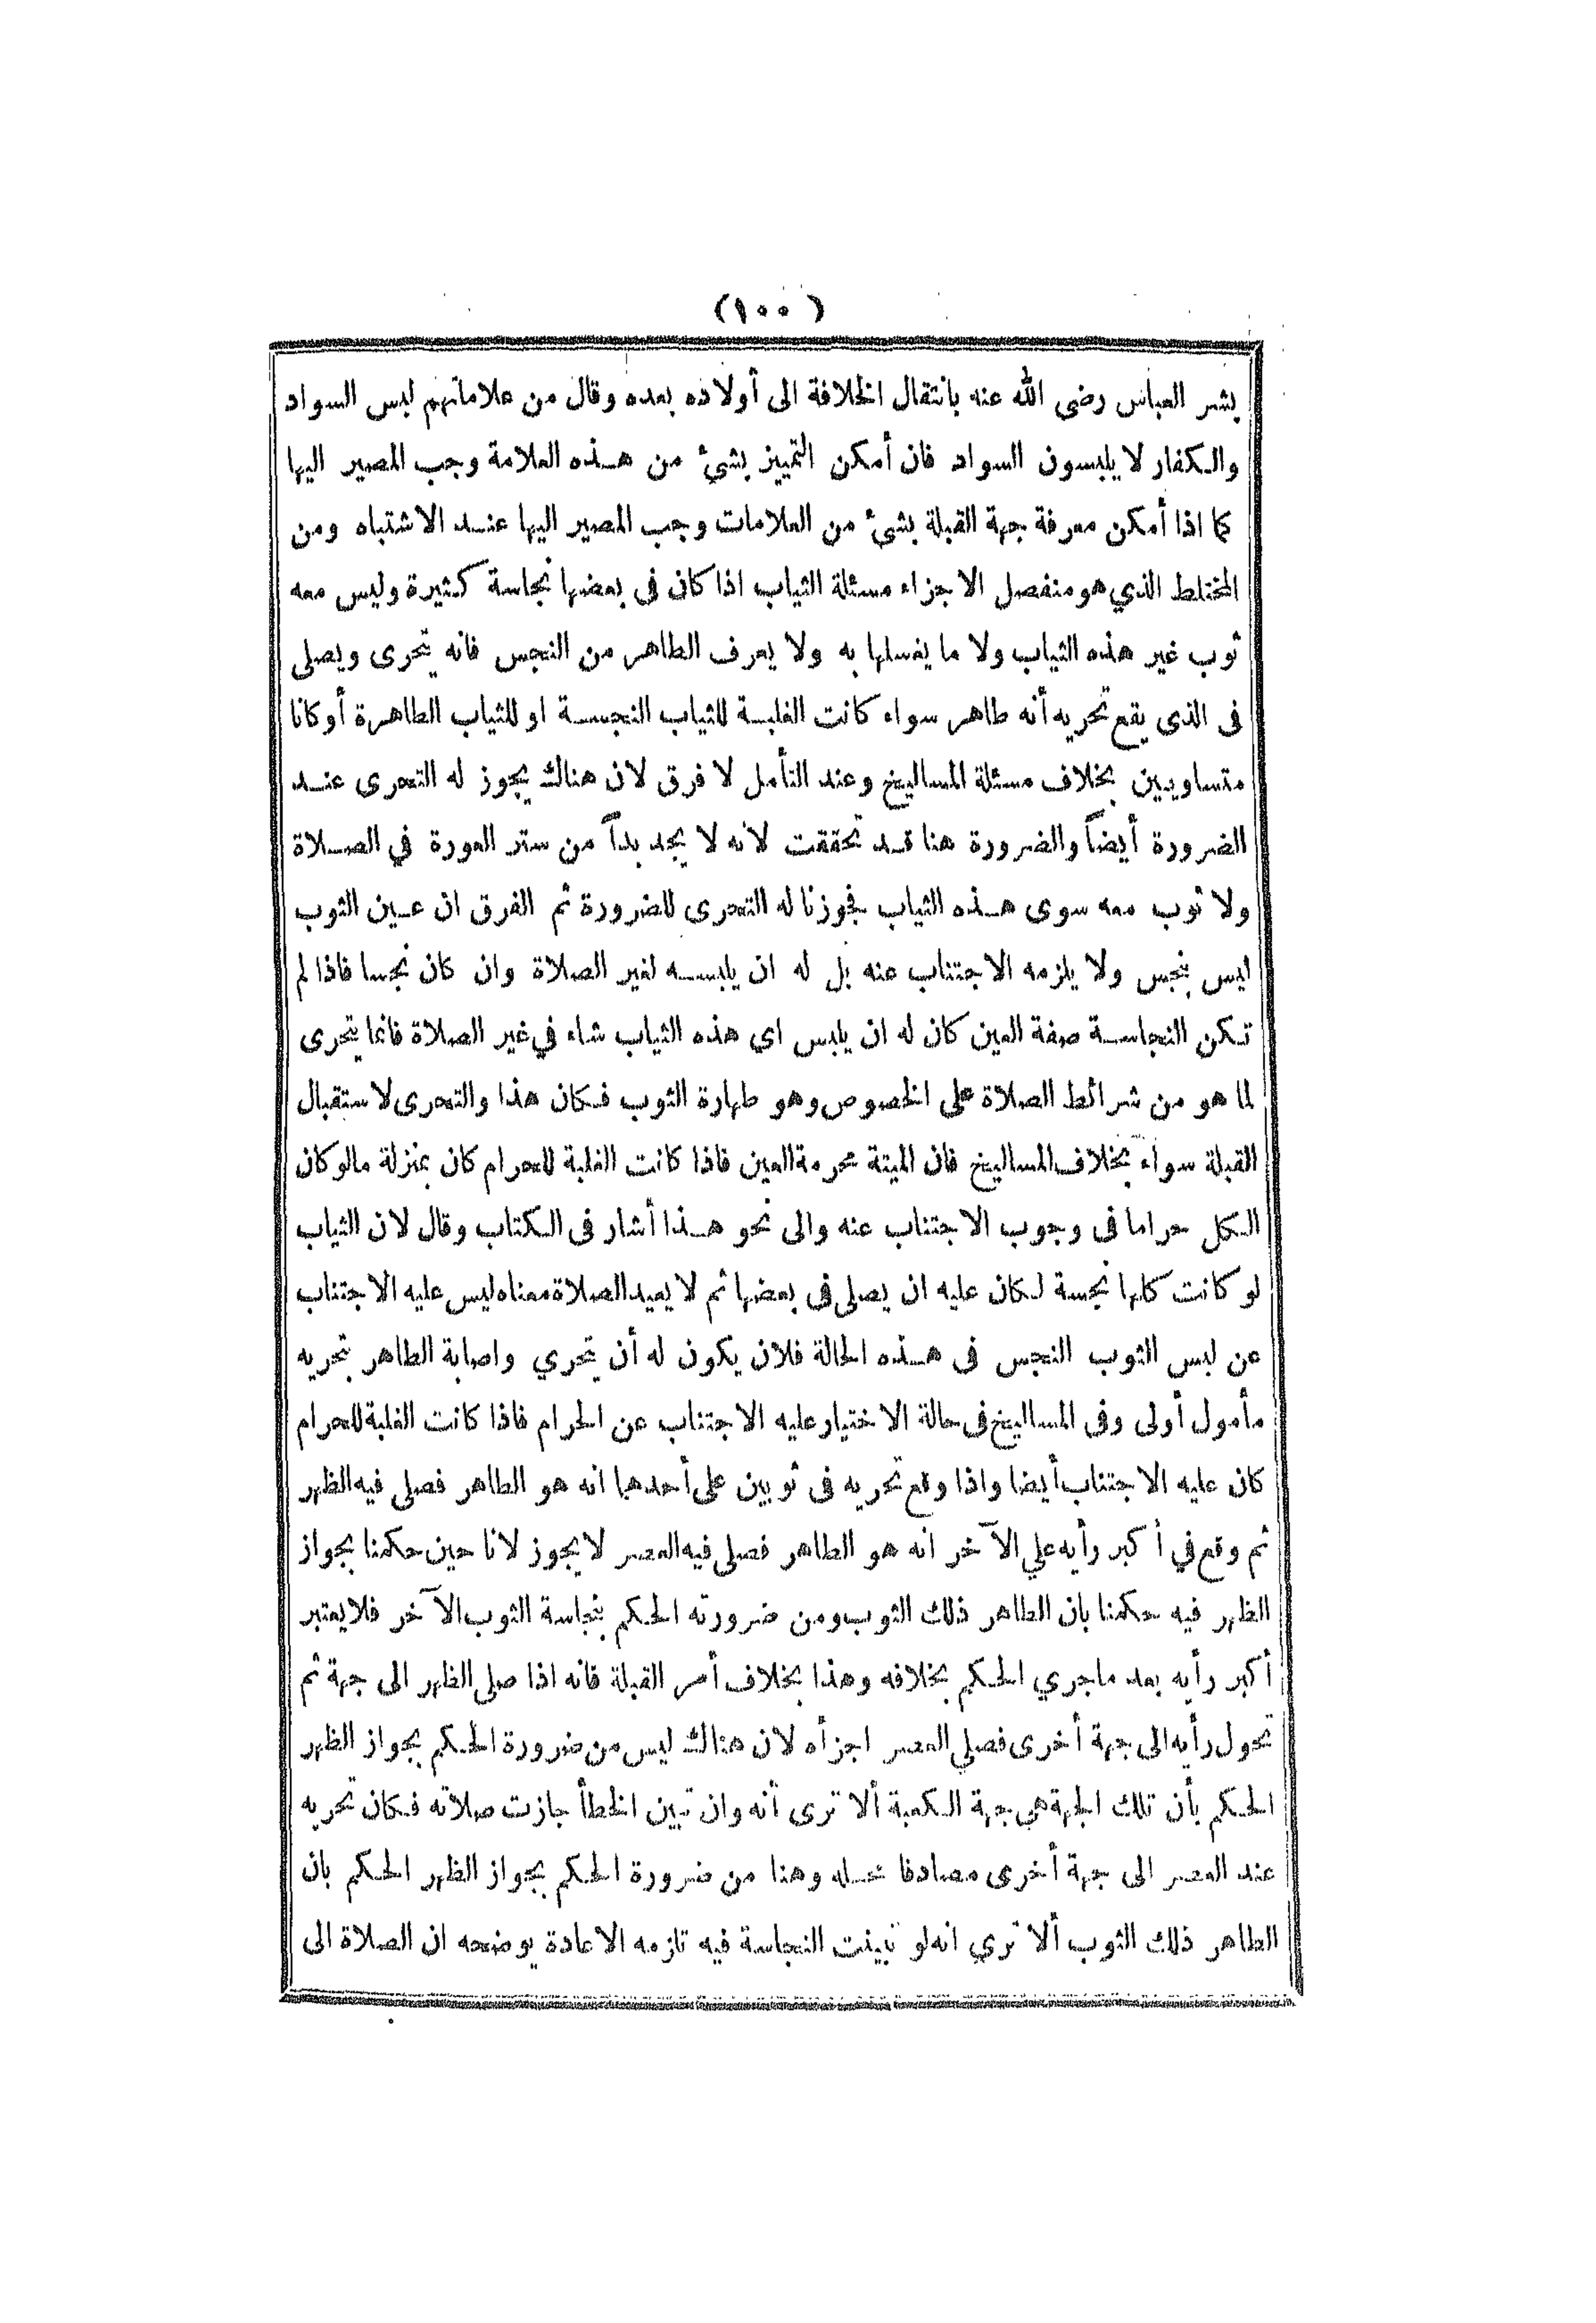 (١٠٠)
بشر العباس رضى الله عنه بانتقال الخلافة الى أولاده بعده وقال من علاماتهم لبس السواد
والكفار لا يلبسون السواد فان أمكن التمييز بشئ من هذه العلامة وجب المصير اليها
كما اذا أمكن معرفة جهة القبلة بشئ من العلامات وجب المصير اليها عند الاشتباه ومن
المختلط الذي هو منفصل الاجزاء مسئلة الثياب اذا كان فى بعضها نجاسة كثيرة وليس معه
ثوب غير هذه الثياب ولا ما يغسلها به ولا يعرف الطاهر من النجس فانه يتحرى ويصلى
فى الذى يقع تحريه أنه طاهر سواء كانت الغلبة للثياب النجسة او للثياب الطاهرة أو كانا
متساويين بخلاف مسئلة المساليخ وعند التأمل لا فرق لان هناك يجوز له التحرى عند
الضرورة أيضاً والضرورة هنا قد تحققت لانه لا يجد بداً من ستر العورة في الصلاة
ولا ثوب معه سوى هذه الثياب فجوزنا له التحرى للضرورة ثم الفرق ان عين الثوب
ليس بنجس ولا يلزمه الاجتناب عنه بل له ان يلبسه لغير الصلاة وان كان نجسا فاذا لم
تكن النجاسة صفة العين كان له ان يلبس اي هذه الثياب شاء في غير الصلاة فانما يتحرى
لما هو من شرائط الصلاة على الخصوص وهو طهارة الثوب فكان هذا والتحرى لاستقبال
القبلة سواء بخلاف المساليخ فان الميتة محرمة العين فاذا كانت الغلبة للحرام كان بمنزلة مالو كان
الكل حراما فى وجوب الاجتناب عنه والى نحو هذا أشار فى الكتاب وقال لان الثياب
لو كانت كلها نجسة لكان عليه ان يصلى فى بعضها ثم لا يعيد الصلاة معناه ليس عليه الاجتناب
عن لبس الثوب النجس فى هذه الحالة فلان يكون له أن يتحري واصابة الطاهر بتحريه
مأمول أولى وفى المساليخ فى حالة الاختيار عليه الاجتناب عن الحرام فاذا كانت الغلبة للحرام
كان عليه الاجتناب أيضا واذا وقع تحريه فى ثوبين على أحدهما انه هو الطاهر فصلى فيه الظهر
ثم وقع في أكبر رأيه علي الآخر انه هو الطاهر فصلى فيه العصر لا يجوز لانا حين حكمنا بجواز
الظهر فيه حكمنا بان الطاهر ذلك الثوب ومن ضرورته الحكم بنجاسة الثوب الآخر فلا يعتبر
أكبر رأيه بعد ماجري الحكم بخلافه وهذا بخلاف أمر القبلة فانه اذا صلى الظهر الى جهة ثم
تحول رأيه الى جهة أخرى فصلي العصر اجزأه لان هناك ليس من ضرورة الحكم بجواز الظهر
الحكم بأن تلك الجهة هي جهة الكعبة ألا ترى أنه وان تبين الخطأ جازت صلاته فكان تحريه
عند العصر الى جهة أخرى مصادفا محله وهنا من ضرورة الحكم بجواز الظهر الحكم بان
الطاهر ذلك الثوب ألا تري انه لو تبينت النجاسة فيه تلزمه الاعادة يوضحه ان الصلاة الى